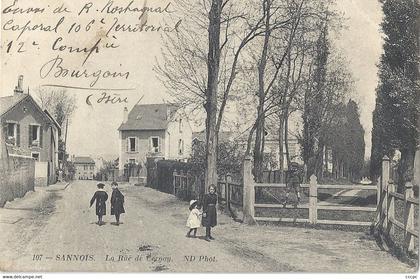 Envoi de R. Rostaghat
Caporal 106e Territorial
12e Compie
Bourgoin
(Isère)
107 - SANNOIS. La Rue de Cernay. ND Phot.